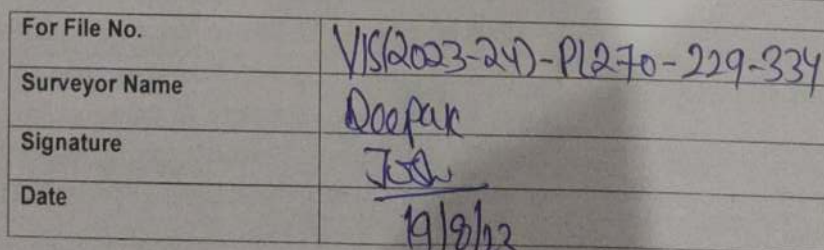 For File No. VIS(2023-24)-PL270-229-334
Surveyor Name Deepak
Signature Joshi
Date 19/8/23